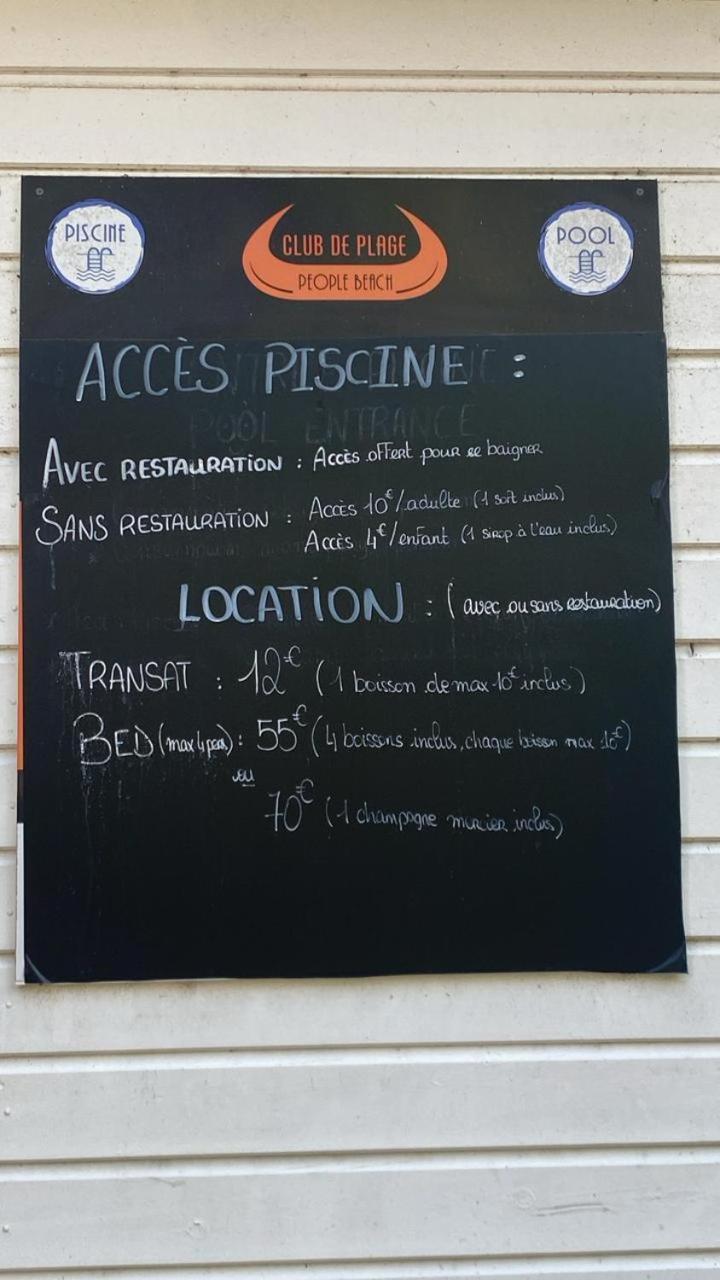 PISCINE
CLUB DE PLAGE
PEOPLE BEACH
POOL
ACCÈS PISCINE :
POOL ENTRANCE
AVEC RESTAURATION : Accès offert pour se baigner
SANS RESTAURATION : Accès 10€/adulte (1 soft inclus)
Accès 4€/enfant (1 sirop à l'eau inclus)
LOCATION : (avec ou sans restauration)
TRANSAT : 12€ (1 boisson de max 10€ inclus)
BED (max 4 pers) : 55€ (4 boissons inclus, chaque boisson max 10€)
ou
70€ (1 champagne mercier inclus)